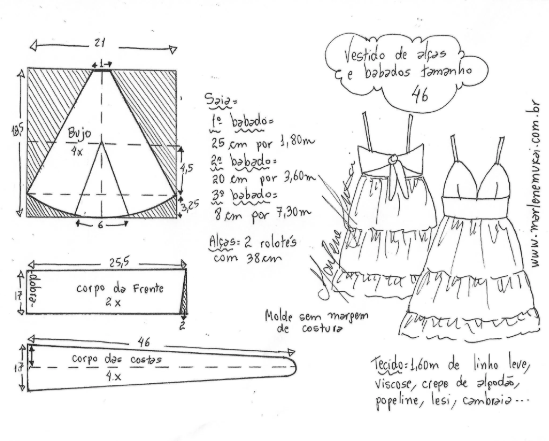 21
1
18,5
Bujo
4x
4,5
3,25
6
25,5
17
dobra
corpo da frente
2x
2
46
17
corpo das costas
4x
Saia=
1º babado=
25 cm por 1,80m
2º babado=
20 cm por 3,60m
3º babado=
8 cm por 7,30m
Alças: 2 rolotês
com 38cm
Vestido de alças
e babados tamanho
46
Marlene Mukai
Molde sem margem
de costura
Tecido=1,60m de linho leve,
viscose, crepo de algodão,
popeline, lesi, cambraia...
www.marlenemukai.com.br